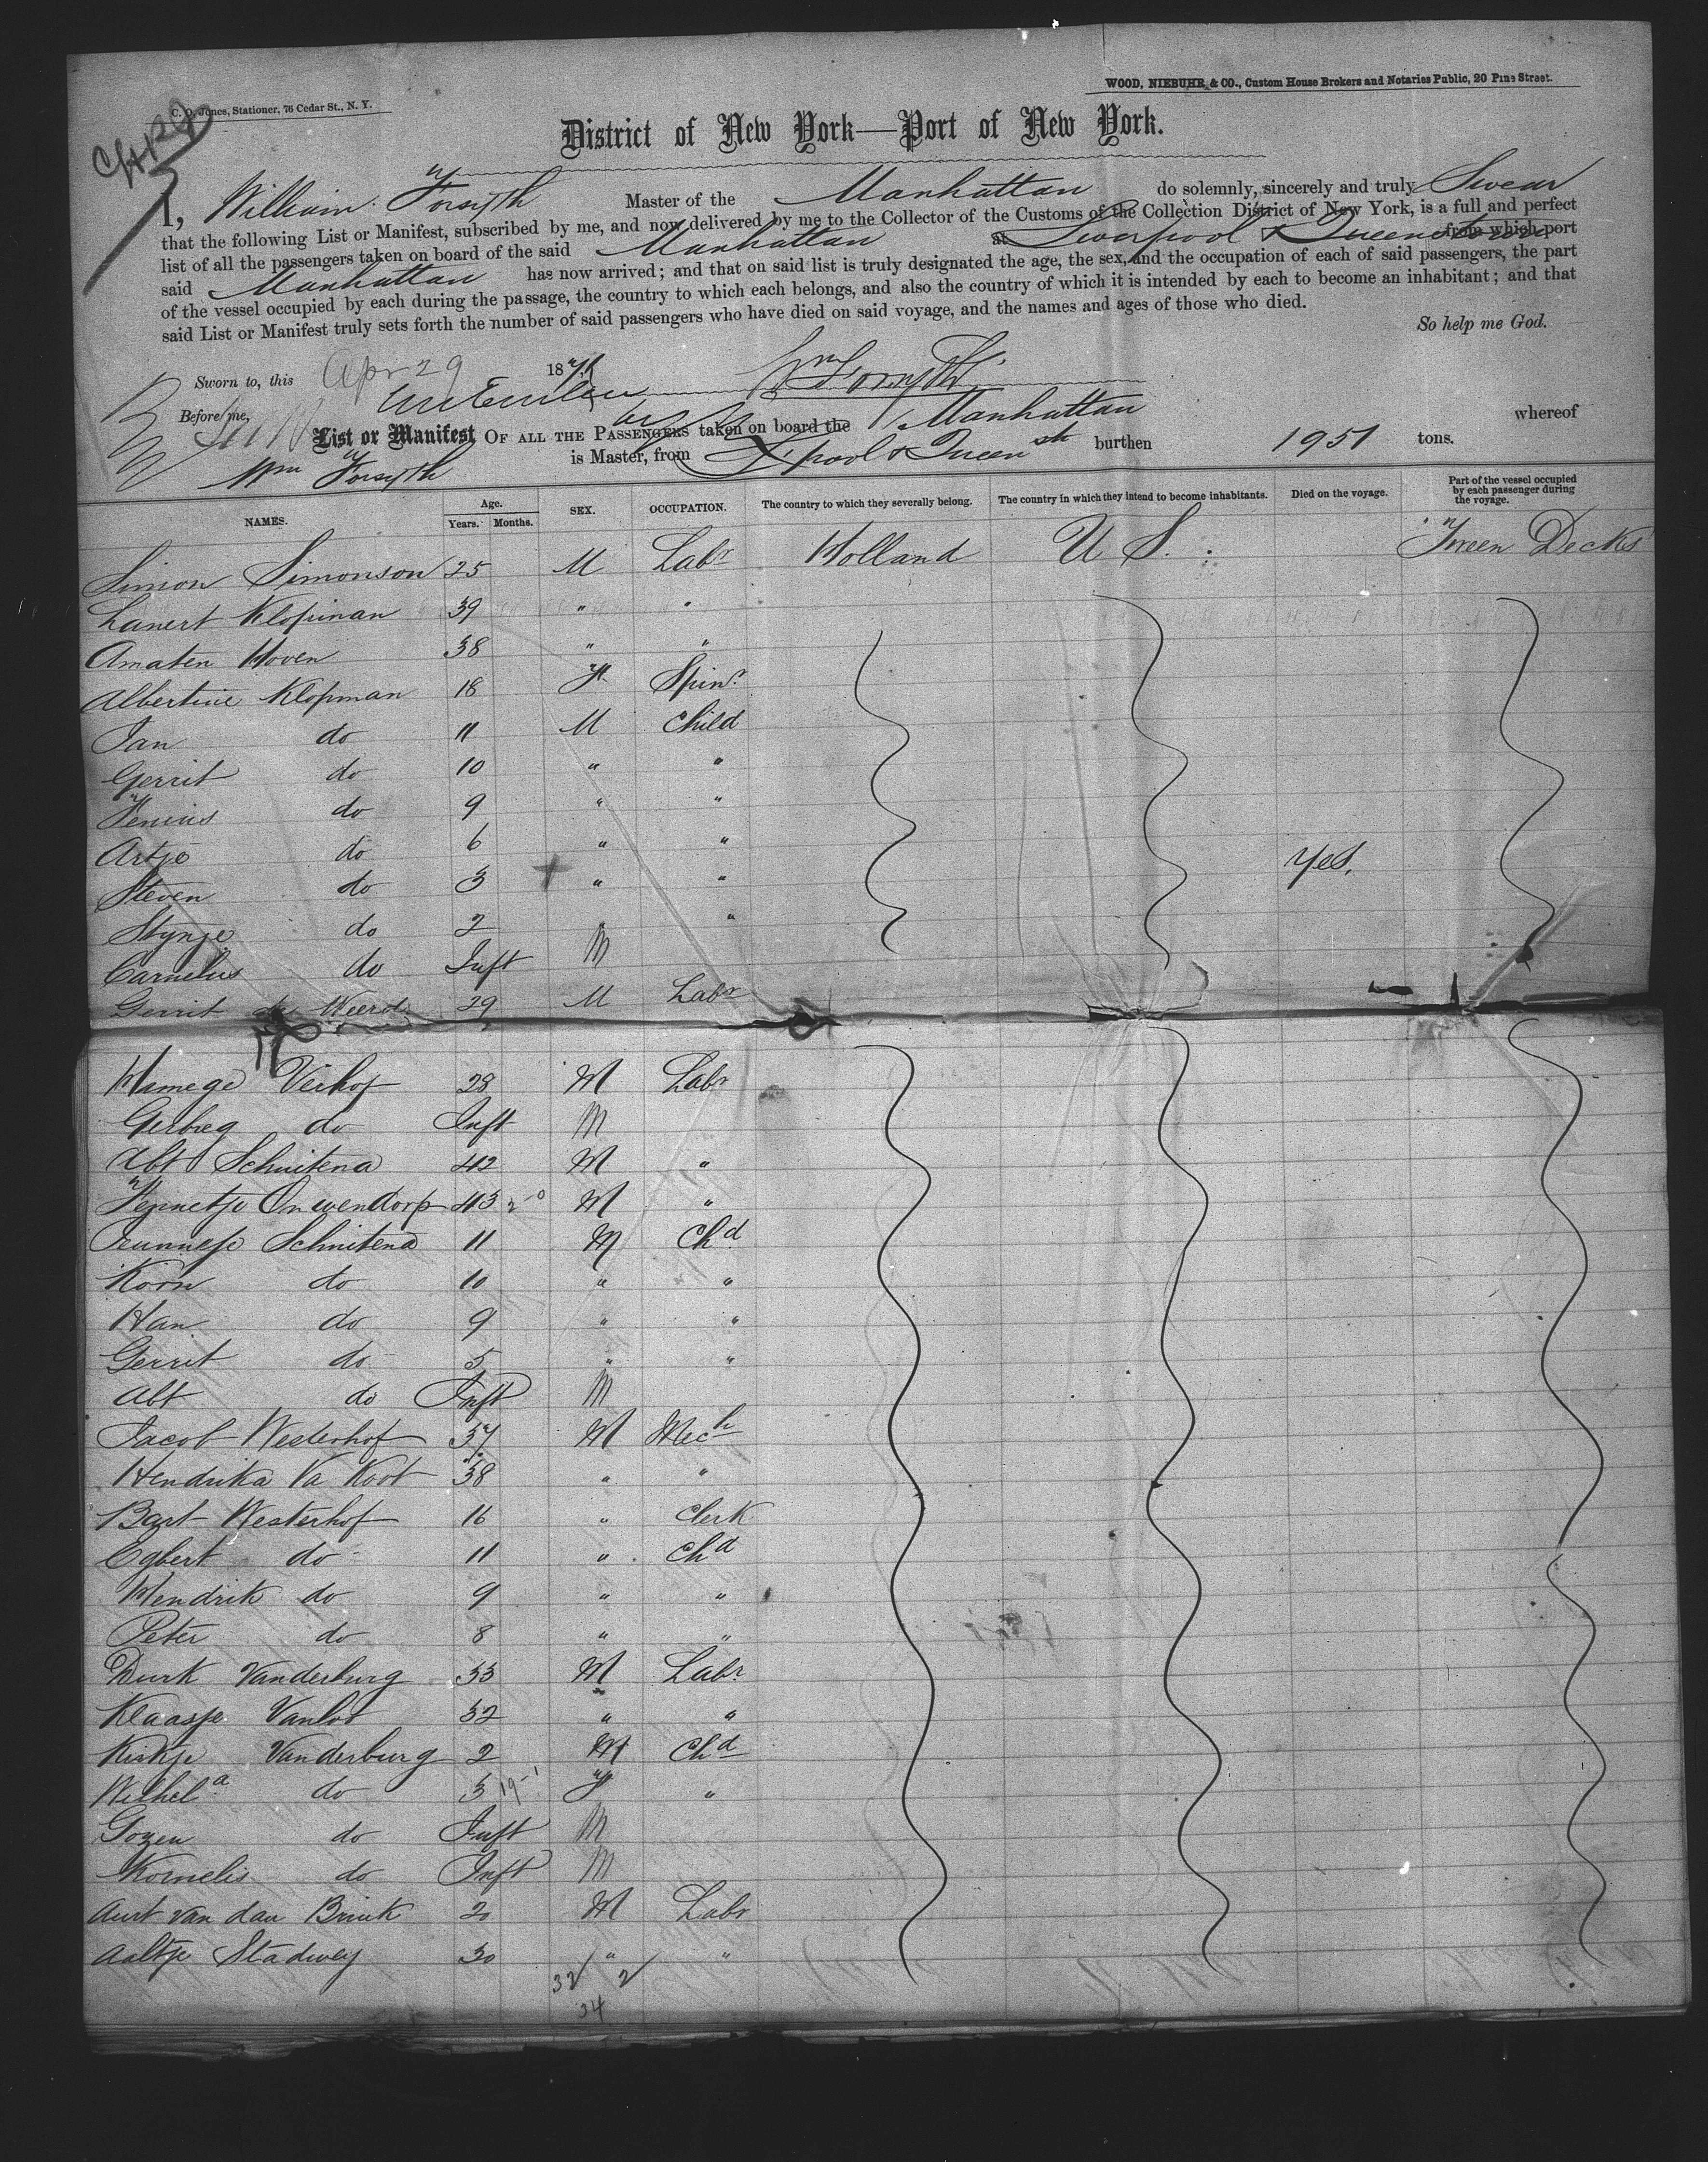 C. D. Jones, Stationer, 76 Cedar St., N. Y.
WOOD, NIEBUHR & CO., Custom House Brokers and Notaries Public, 20 Pine Street.
District of New York—Port of New York.
I, William Forsyth Master of the Manhattan do solemnly, sincerely and truly Swear
that the following List or Manifest, subscribed by me, and now delivered by me to the Collector of the Customs of the Collection District of New York, is a full and perfect
list of all the passengers taken on board of the said Manhattan at Liverpool & Queenstown from which port
said Manhattan has now arrived; and that on said list is truly designated the age, the sex, and the occupation of each of said passengers, the part
of the vessel occupied by each during the passage, the country to which each belongs, and also the country of which it is intended by each to become an inhabitant; and that
said List or Manifest truly sets forth the number of said passengers who have died on said voyage, and the names and ages of those who died.
So help me God.
Sworn to, this Apr 29 1871 Wm Forsyth
Before me,
List or Manifest OF ALL THE PASSENGERS taken on board the Manhattan whereof
Wm Forsyth is Master, from L'pool & Queensth burthen 1951 tons.
NAMES. Age. Years. Months. SEX. OCCUPATION. The country to which they severally belong. The country in which they intend to become inhabitants. Died on the voyage. Part of the vessel occupied by each passenger during the voyage.
Simon Simonson 25 M Labr Holland U S. Tween Decks
Lanert Klopman 39 " "
Amaten Hoven 38 " "
Albertine Klopman 18 F Spinr
Jan do 11 M Child
Gerrit do 10 " "
Fenius do 9 " "
Artje do 6 " "
Steven do 3 + " " Yes.
Stynge do 2 " "
Carnelius do Inft M
Gerrit de Weerd 29 M Labr
Hamege Veihof 28 M Labr
Gerbreg do Inft M
Abt Schuitena 42 M "
Fennetje Onwendorp 43 M "
Schuitena 11 M Chd
Korn do 10 " "
Han do 9 " "
Gerrit do 5 " "
Abt do Inft M
Jacob Westerhof 37 M Mech
Hendrika Va Koot 38 " "
Bart Westerhof 16 " Clerk
Egbert do 11 " Chd
Hendrik do 9 " "
Peter do 8 " "
Durk Vanderburg 33 M Labr
Klaasje Vanloo 32 " "
Kirkje Vanderburg 2 M Chd
Wilhela do 3 19-1 F "
Gozen do Inft M
Kornelis do Inft M
Aurt van dan Brink 20 M Labr
Aaltje Stadwey 30 " "
32 2
34